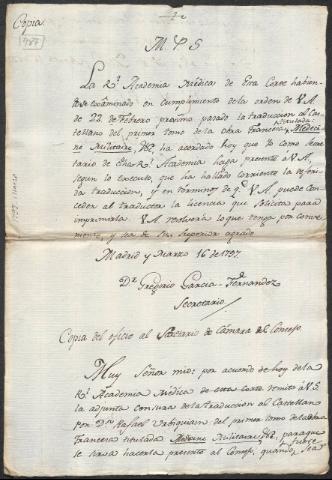 Copia
487
M. P. S
La Rl. Academia Médica de esta Corte habien-
do examinado en cumplimiento de la orden de V.A.
de 22 de Febrero próximo pasado la traduccion al Cas-
tellano del primer tomo de la obra Francesa titulada: Medeci-
ne Militaire, &c. ha acordado hoy que yo como Secre-
tario de dha Rl. Academia haga presente á V.A,
segun lo executo, que ha hallado corriente la referi-
da traduccion, y en términos de q.e V.A. puede con-
ceder al traductor la licencia que solicita para
imprimirla. V.A. resolverá lo que tenga por conve-
niente, y sea de su superior agrado.
Madrid y Marzo 16 de 1797.
Dr. Gregorio Garcia Fernandez
Secretario
Copia del oficio al Secretario de Cámara del Consejo.
Muy Señor mio: por acuerdo de hoy de la
Rl. Academia Médica de esta Corte remito á V.S.
la adjunta censura de la traduccion al Castellano
por Dn. Rafael del primer tomo de la obra
Francesa titulada Medecine Militaire &c. para que
se sirva hacerla presente al Consejo, quando